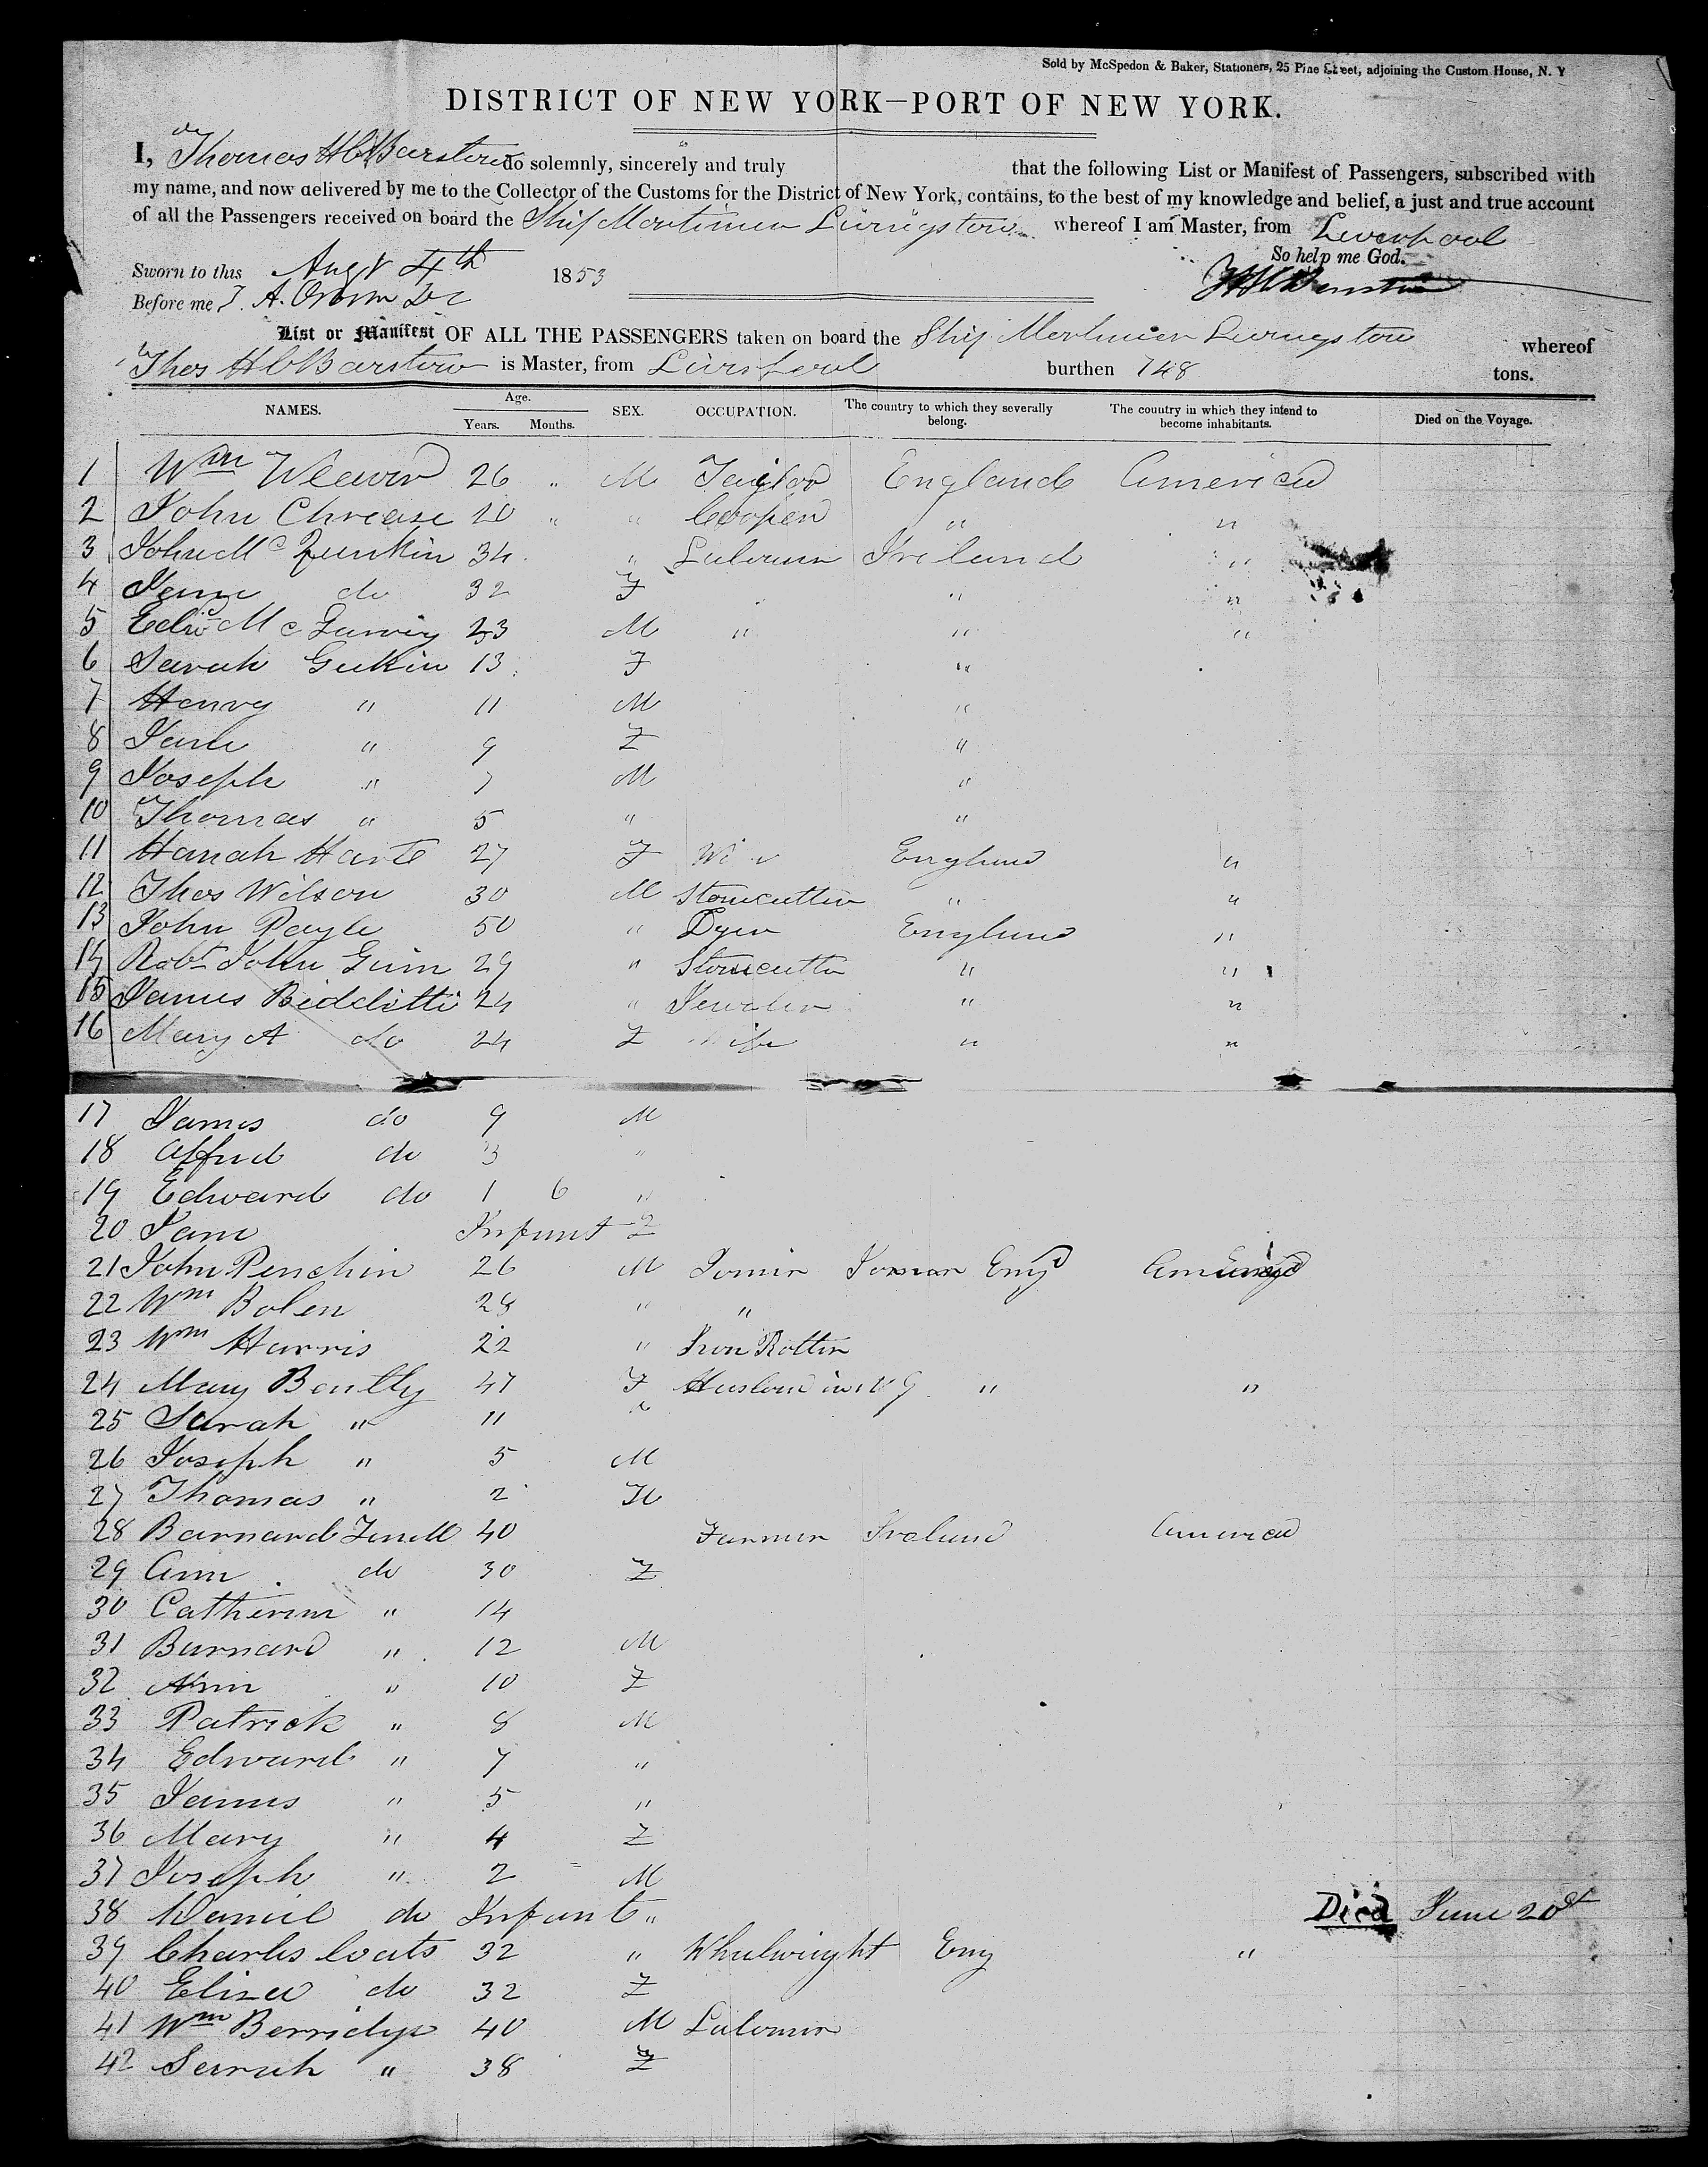 Sold by McSpedon & Baker, Stationers, 25 Pine Street, adjoining the Custom House, N. Y
DISTRICT OF NEW YORK—PORT OF NEW YORK.
I, Thomas H C Barstow do solemnly, sincerely and truly that the following List or Manifest of Passengers, subscribed with
my name, and now delivered by me to the Collector of the Customs for the District of New York, contains, to the best of my knowledge and belief, a just and true account
of all the Passengers received on board the Ship Mortimer Livingston whereof I am Master, from Liverpool
So help me God.
Sworn to this Augt 4th 1853
Before me
List or Manifest OF ALL THE PASSENGERS taken on board the Ship Mortimer Livingston whereof
Thos H C Barstow is Master, from Liverpool burthen 748 tons.
NAMES. Age. Years. Months. SEX. OCCUPATION. The country to which they severally belong. The country in which they intend to become inhabitants. Died on the Voyage.
1 Wm Weaver 26 " M Tailor England America
2 John Chrease 20 " " Cooper " "
3 John Mc 34 " Labourer Ireland "
4 Jane do 32 F " "
5 Edwd Mc 23 M " " "
6 Sarah 13 F "
7 Henry " 11 M "
8 Jane " 9 F "
9 Joseph " 7 M "
10 Thomas " 5 " "
11 Hanah Harte 27 F England "
12 Thos Wilson 30 M Stonecutter " "
13 John Payle 50 " Dyer England "
14 Robt John 29 " Stonecutter " "
15 James 24 " Jeweler " "
16 Mary A do 24 F Wife " "
17 James do 9 M
18 Alfred do 3 "
19 Edward do 1 6 "
20 Jane Infant F
21 John Penchin 26 M Joiner Engd
22 Wm Bolen 28 " "
23 Wm Harris 22 " Iron
24 Mary Bently 47 F Husband in N Y " "
25 Sarah " 11 "
26 Joseph " 5 M
27 Thomas " 2 M
28 Barnard 40 Farmer Ireland America
29 Ann do 30 F
30 Catherine " 14
31 Barnard " 12 M
32 Ann " 10 F
33 Patrick " 8 M
34 Edward " 7 "
35 James " 5 "
36 Mary " 4 F
37 Joseph " 2 M
38 Daniel do Infant " Died June 20st
39 Charles Coats 32 " Wheelwright Eng "
40 Eliza do 32 F
41 Wm Berridge 40 M Labourer
42 Sarah " 38 F